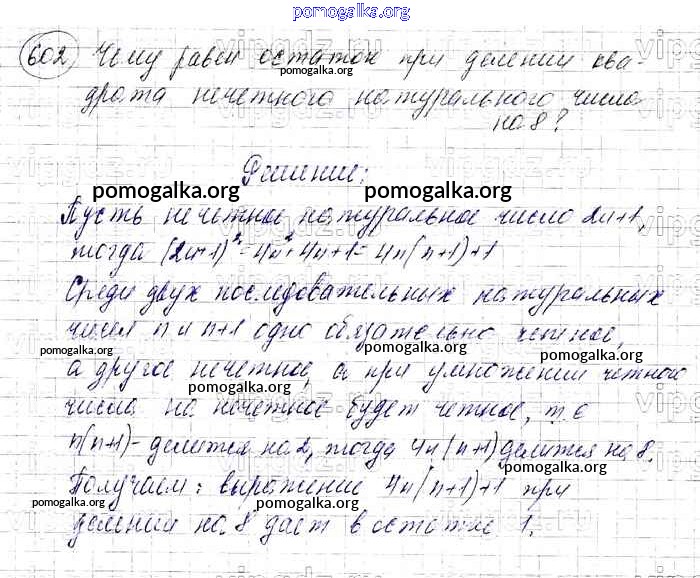 pomogalka.org
602) Чему равен остаток при делении ква-
pomogalka.org pomogalka.org
драта нечетного натурального числа
на 8?
Решение:
pomogalka.org pomogalka.org
Пусть нечетное натуральное число 2n+1,
тогда (2n+1)²=4n²+4n+1=4n(n+1)+1
Среди двух последовательных натуральных
чисел n и n+1 одно обязательно четное,
pomogalka.org pomogalka.org pomogalka.org
а другое нечетное, а при умножении четного
pomogalka.org
числа на нечетное будет четное, т.е
n(n+1)- делится на 2, тогда 4n(n+1) делится на 8.
pomogalka.org pomogalka.org
Получаем: выражение 4n(n+1)+1 при
pomogalka.org pomogalka.org
делении на 8 дает в остатке 1.